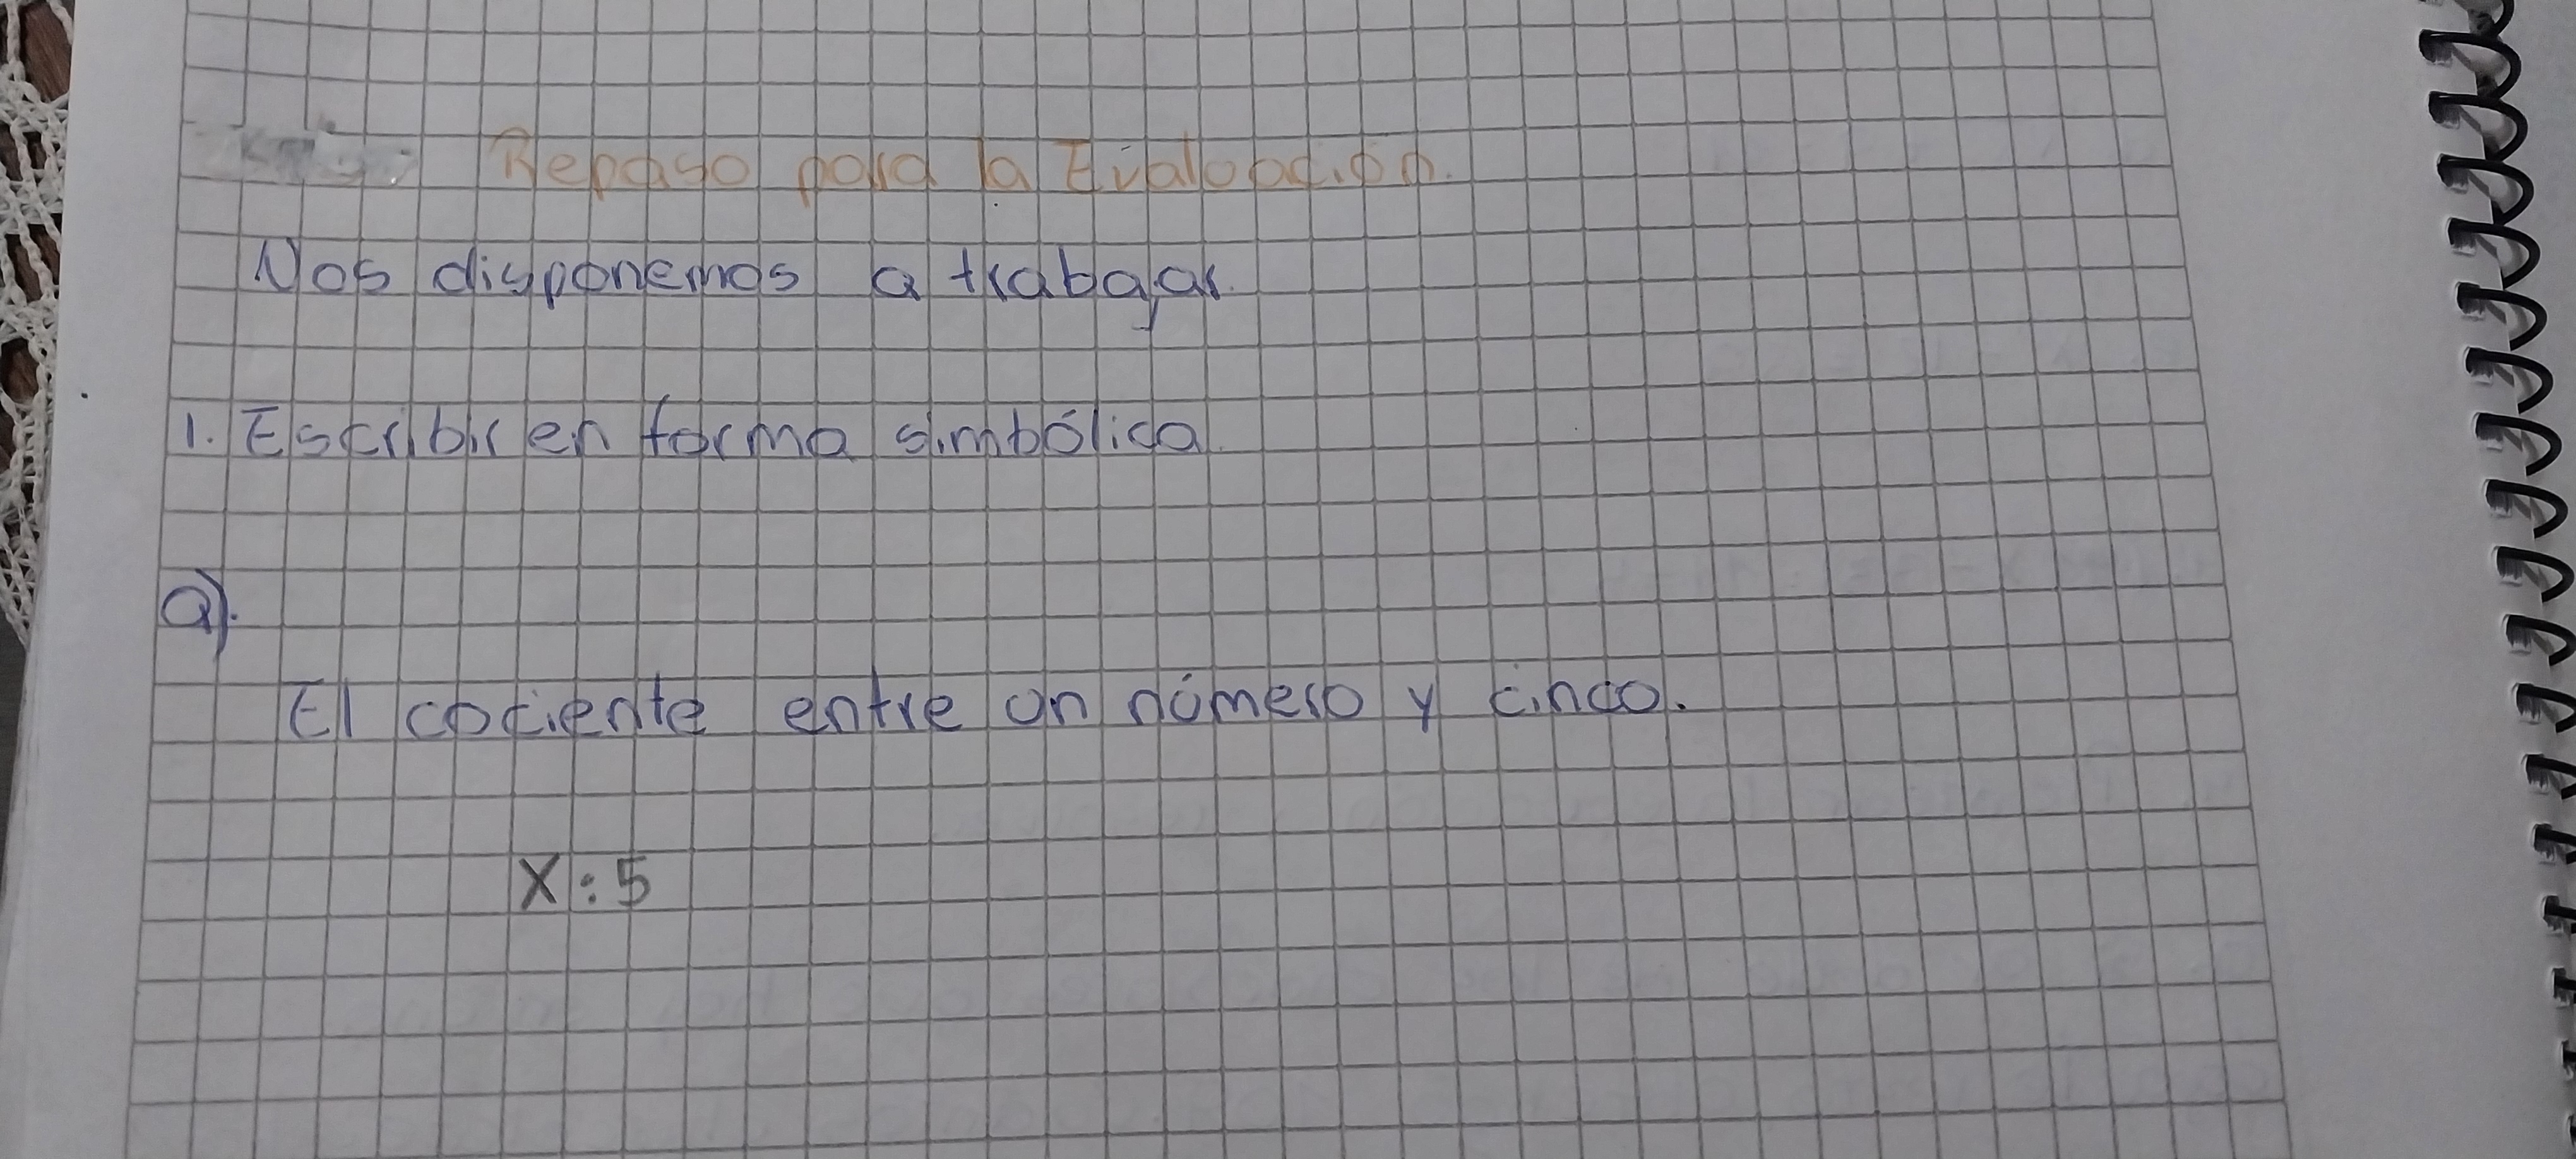 Repaso para la Evaluación.
Nos disponemos a trabajar.
1. Escribir en forma simbólica.
a).
El cociente entre un número y cinco.
X:5